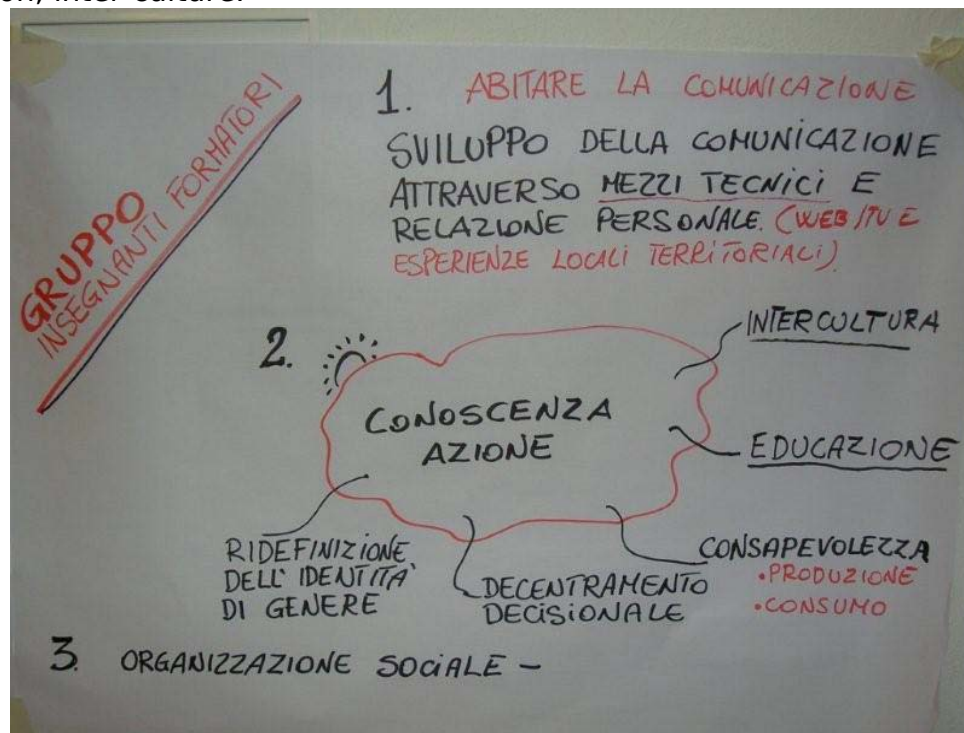 on, inter-culture.
GRUPPO
INSEGNANTI FORMATORI
1. ABITARE LA COMUNICAZIONE
SVILUPPO DELLA COMUNICAZIONE
ATTRAVERSO MEZZI TECNICI E
RELAZIONE PERSONALE. (WEB/TV E
ESPERIENZE LOCALI TERRITORIALI)
2.
CONOSCENZA
AZIONE
INTERCULTURA
EDUCAZIONE
CONSAPEVOLEZZA
• PRODUZIONE
• CONSUMO
DECENTRAMENTO
DECISIONALE
RIDEFINIZIONE
DELL' IDENTITA'
DI GENERE
3. ORGANIZZAZIONE SOCIALE –